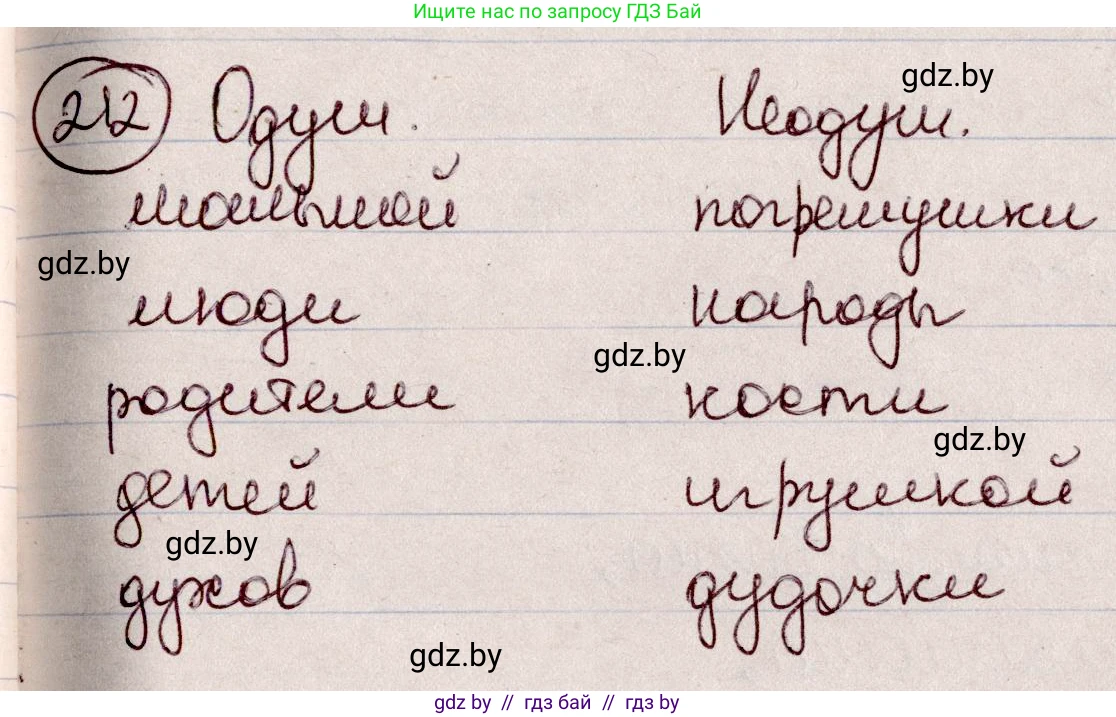 Ищите нас по запросу ГДЗ Бай
gdz.by
212 Одуш. Неодуш.
малышей погремушки
gdz.by
люди народы
gdz.by
родители кости
gdz.by
детей игрушкой
gdz.by
духов дудочки
gdz.by
gdz by // гдз бай // гдз by